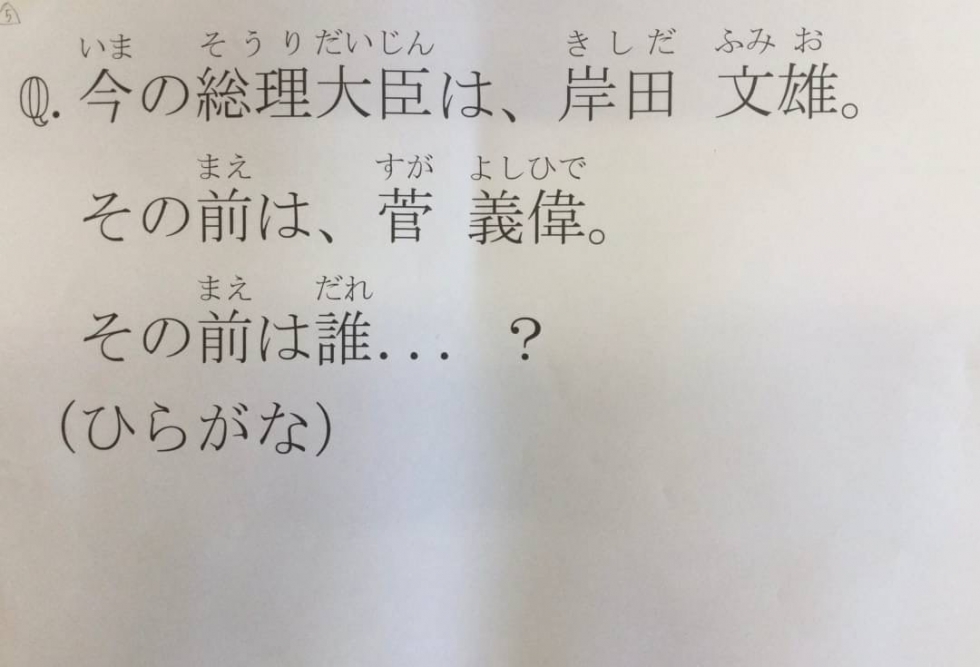 5
いま そうりだいじん きしだ ふみお
Q.今の総理大臣は、岸田 文雄。
まえ すが よしひで
その前は、菅 義偉。
まえ だれ
その前は誰... ?
(ひらがな)